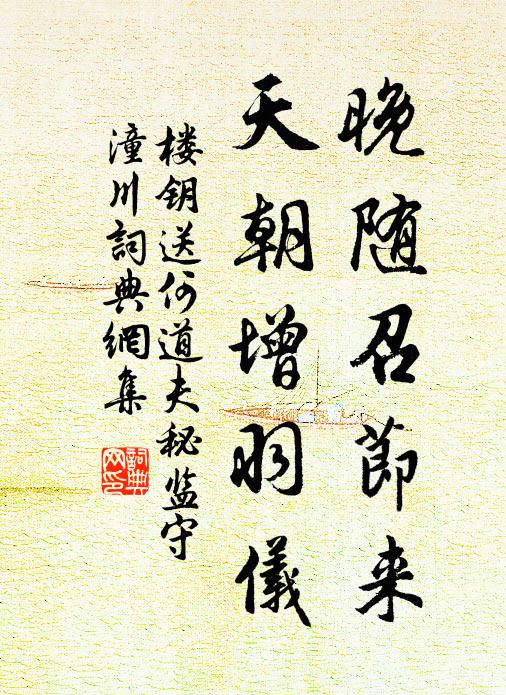 晚随召節来
天朝增羽儀
楼钥送何道夫秘监守
潼川詞典網集
詞典网印